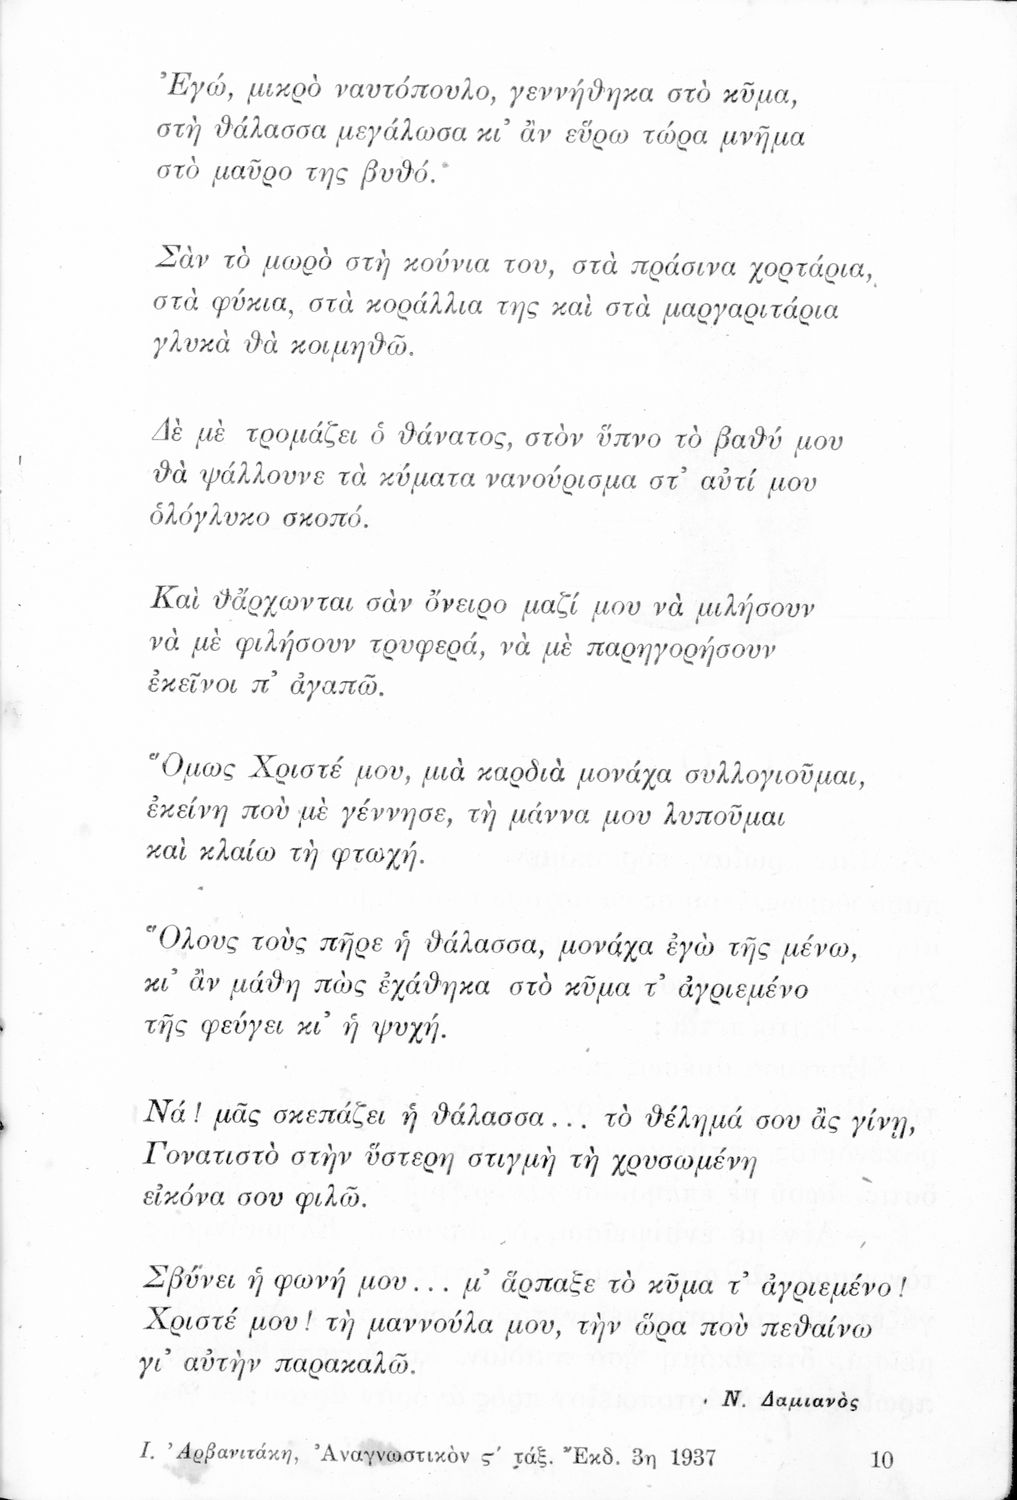 Ἐγώ, μικρὸ ναυτόπουλο, γεννήθηκα στὸ κῦμα,
στὴ θάλασσα μεγάλωσα κι᾿ ἂν εὕρω τώρα μνῆμα
στὸ μαῦρο της βυθό.
Σὰν τὸ μωρὸ στὴ κούνια του, στὰ πράσινα χορτάρια,
στὰ φύκια, στὰ κοράλλια της καὶ στὰ μαργαριτάρια
γλυκὰ θὰ κοιμηθῶ.
Δὲ μὲ τρομάζει ὁ θάνατος, στὸν ὕπνο τὸ βαθύ μου
θὰ ψάλλουνε τὰ κύματα νανούρισμα στ᾿ αὐτί μου
ὁλόγλυκο σκοπό.
Καὶ θἄρχωνται σὰν ὄνειρο μαζί μου νὰ μιλήσουν
νὰ μὲ φιλήσουν τρυφερά, νὰ μὲ παρηγορήσουν
ἐκεῖνοι π᾿ ἀγαπῶ.
Ὅμως Χριστέ μου, μιὰ καρδιὰ μονάχα συλλογιοῦμαι,
ἐκείνη ποὺ μὲ γέννησε, τὴ μάννα μου λυποῦμαι
καὶ κλαίω τὴ φτωχή.
Ὅλους τοὺς πῆρε ἡ θάλασσα, μονάχα ἐγὼ τῆς μένω,
κι᾿ ἂν μάθη πὼς ἐχάθηκα στὸ κῦμα τ᾿ ἀγριεμένο
τῆς φεύγει κι᾿ ἡ ψυχή.
Νά! μᾶς σκεπάζει ἡ θάλασσα... τὸ θέλημά σου ἂς γίνῃ,
Γονατιστὸ στὴν ὕστερη στιγμὴ τὴ χρυσωμένη
εἰκόνα σου φιλῶ.
Σβύνει ἡ φωνή μου... μ᾿ ἅρπαξε τὸ κῦμα τ᾿ ἀγριεμένο!
Χριστέ μου! τὴ μαννούλα μου, τὴν ὥρα ποὺ πεθαίνω
γι᾿ αὐτὴν παρακαλῶ.
Ν. Δαμιανὸς
Ι. Ἀρβανιτάκη, Ἀναγνωστικὸν ς΄ τάξ. Ἔκδ. 3η 1937 10